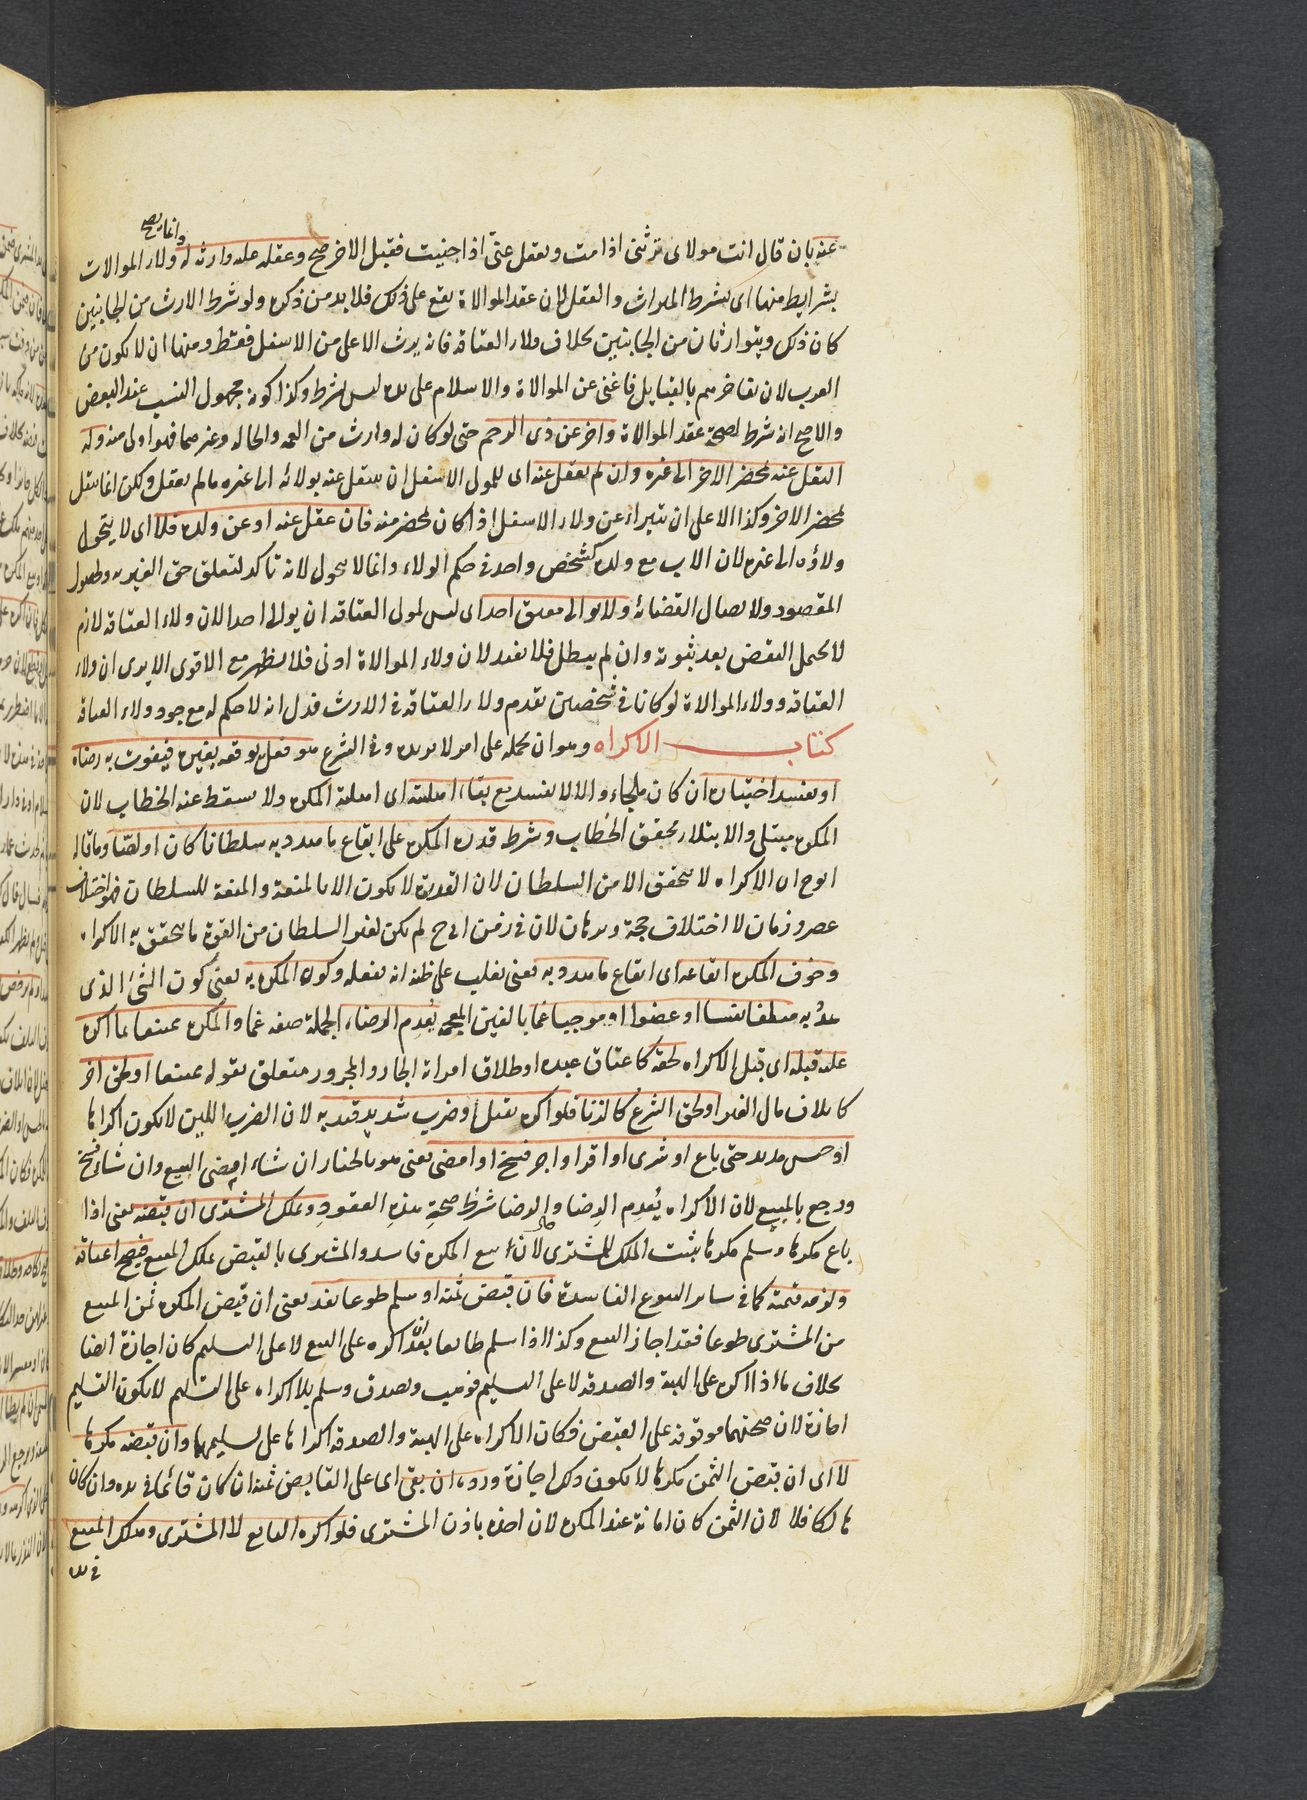 وانما يصح
عنه بان قال انت مولاى ترثنى اذا مت وتعقل عنى اذا جنيت فقبل الاخر صح وعقله عليه وارثه له ولاء الموالات
بشرايط منها اى بشرط الميراث والعقل لان عقد الموالاة يقع على ذلك فلا بد من ذكره ولو شرط الارث من الجانبين
كان ذلك ويتوارثان من الجانبين بخلاف ولاء العتاقة فانه يرث الاعلى من الاسفل فقط ومنها ان لا يكون من
العرب لان تفاخرهم بالقبايل فاغنى عن الموالاة والاسلام على يده ليس بشرط وكذا كونه مجهول النسب عند البعض
والاصح انه شرط لصحة عقد الموالاة واخر عن ذى الرحم حتى لو كان له وارث من العمة والخالة وغيرهما فهو اولى منه وله
النقل عنه بمحضر الاخر الى غيره وان لم يعقل عنه اى للمولى الاسفل ان ينتقل عنه بولائه الى غيره ما لم يعقل ولكن انما ينتقل
بمحضر الاخر وكذا الاعلى ان يتبرأ عن ولاء الاسفل اذا كان بمحضر منه فان عقل عنه او عن ولده فلا اى لا يتحول
ولاؤه الى غيره لان الاب مع ولده كشخص واحد فى حكم الولاء وانما لا يتحول لانه تاكد لتعلق حق الغير به وحصول
المقصود ولاتصال القضاء به ولا يوالى معتق احدا اى ليس لمولى العتاقة ان يوالى احدا لان ولاء العتاقة لازم
لا يحتمل النقض بعد ثبوته وان لم يبطل فلا يفيد لان ولاء الموالاة ادنى فلا يظهر مع الاقوى الا يرى ان ولاء
العتاقة وولاء الموالاة لو كانا فى شخصين تقدم ولاء العتاقة فى الارث فدل انه لا حكم له مع وجود ولاء العتاقة
كتاب الاكراه وهو ان يحمله على امر لا يريده وفى الشرع هو فعل يوقعه بغيره فيفوت به رضاه
او يفسد اختياره ان كان ملجاء والا لا يفسد مع بقاء اهليته اى اهلية المكره ولا يسقط عنه الخطاب لان
المكره مبتلى والابتلاء يحقق الخطاب وشرط قدرة المكره على ايقاع ما هدد به سلطانا كان او لصا وما قاله
ابو ح ان الاكراه لا يتحقق الا من السلطان لان القدرة لا يكون الا بالمنعة والمنعة للسلطان فهو اختلاف
عصر وزمان لا اختلاف حجة وبرهان لان فى زمن ابى ح لم يكن لغير السلطان من القوة ما يتحقق به الاكراه
وخوف المكره ايقاعه اى ايقاع ما هدد به يعنى يغلب على ظنه انه يفعله وكون المكره به يعنى كون الشئ الذى
هدد به متلفا نفسا او عضوا او موجبا غما بالغين المعجمة يعدم الرضاء الجملة صفة غما والمكره ممتنعا عما اكره
عليه قبله اى قبل الاكراه لحقه كاعتاق عبده او طلاق امراته الجار والمجرور متعلق بقوله ممتنعا او لحق اخر
كاتلاف مال الغير او لحق الشرع كالزنا فلو اكره بقتل او ضرب شديد قيد به لان الضرب اللين لا يكون اكراها
او حبس مديد حتى باع او شرى او اقر او اجر فسخ او امضى يعنى هو بالخيار ان شاء امضى البيع وان شاء فسخ
ورجع بالمبيع لان الاكراه يعدم الرضا والرضا شرط صحة هذه العقود وتملك المشترى ان قبضه يعنى اذا
باع مكرها وسلم مكرها يثبت الملك للمشترى لان بيع المكره فاسد والمشترى بالقبض يملك المبيع فيصح اعتاقه
ولزمه قيمته كما فى سائر البيوع الفاسدة فان قبض ثمنه او سلم طوعا نفذ يعنى ان قبض المكره ثمن المبيع
من المشترى طوعا فقد اجاز البيع وكذا اذا سلم طايعا بعد ان اكره على البيع لا على التسليم كان اجازة ايضا
بخلاف ما اذا اكره على الهبة والصدقة لا على التسليم فوهب وتصدق وسلم بلا اكراه على التسليم لا يكون التسليم
اجازة لان صحتهما موقوفة على القبض فكان الاكراه على الهبة والصدقة اكراها على تسليمهما وان قبضه مكرها
لا اى ان قبض الثمن مكرها لا يكون ذلك اجازة ورده ان بقى اى على القابض ثمنه ان كان قائما فى يده وان كان
هالكا فلا لان الثمن كان امانة عند المكره لان اخذه باذن المشترى فلو اكره البايع لا المشترى وهلك المبيع
فى يده